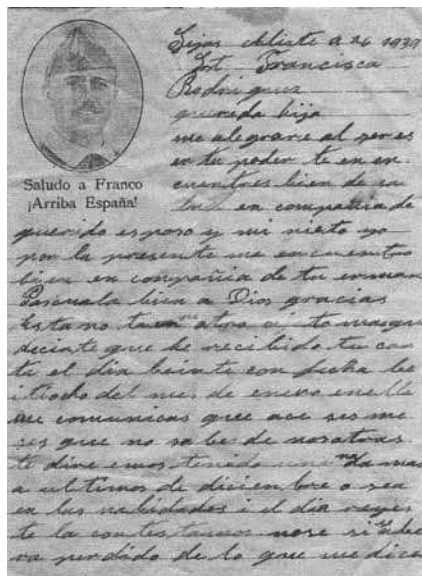 a 26 1939
Francisca
Rodriguez
querida hija
me alegrare al ser es
en tu poder te en en
cuentres bien de sa
lud en compañia de
Saludo a Franco
¡Arriba España!
querido esposo y mi nieto yo
por la presente me encuentro
bien en compañia de tu erman
Pascuala bien a Dios gracias
Esta no tiene otro ojeto mas que
decirte que he recibido tu car
ta el dia beinte con fecha be
itiocho del mes de enero en ella
me comunicas que ace ses me
ses que no sabes de nosotras
te dire emos tenido una
a ultimos de diciembre o sea
en las nabidades i el dia reyes
te la contestamos nose si abe
ra perdido de lo que me dice